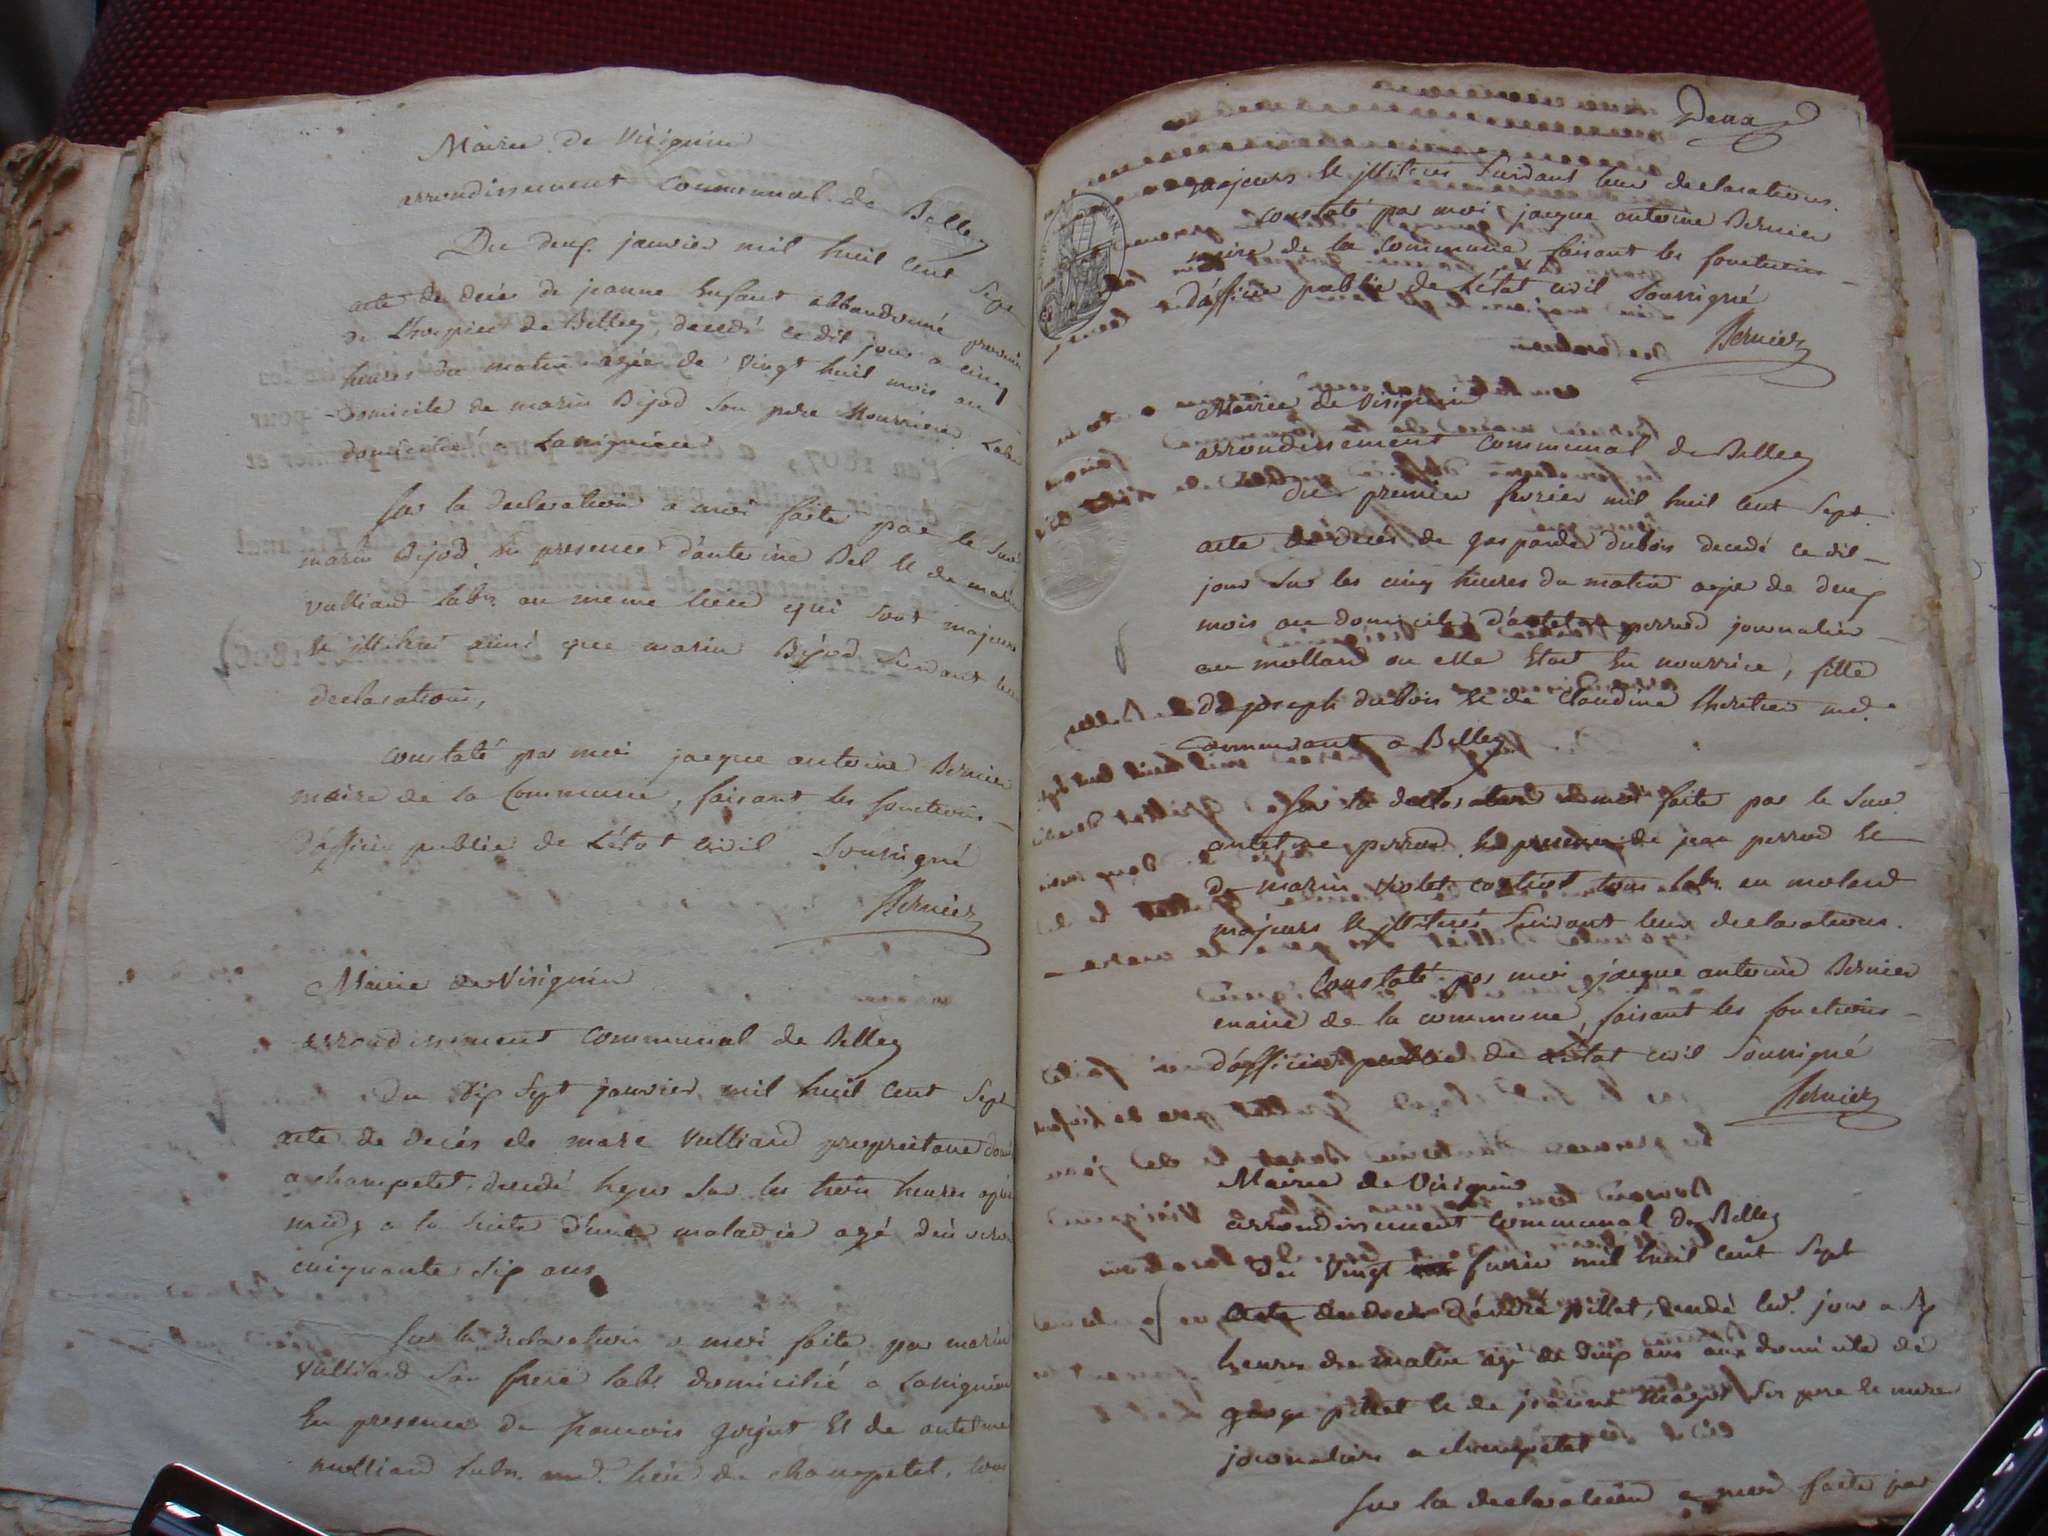 Mairie de Virignin
arrondissement communal de Belley
Du deux janvier mil huit cent Sept
acte de decés de jeanne Enfant abbandonné provenu
de L'hospice de Belley, decedé ce dit jour a cinq
heures du matin agée de vingt huit mois au
domicile de marin Bijod Son pere Nourricier Labr
domicilié Lassignieu
Sur la declaration a moi faite par le Sud
marin Bijod, En presence d'antoine Bal Et de marin
vulliard labr. au meme lieu qui Sont majeurs
Et illitérés ainsi que marin Bijod Suivant leur
declarations,
Constaté par moi jacque antoine Bernier
maire de la Commune, faisant les fonctions
d'officier public de L'état civil Soussigné
Bernier
Mairie de Virignin
arrondissement communal de Belley
Du dix Sept janvier mil huit cent Sept
acte de decés de marc Vulliard proprietaire dom
a champetel, decedé hyer Sur les trois heures après
midy a la Suite d'une maladie agé d'environ
cinquante Six ans
Sur la declaration a moi faite par marin
Vulliard Son frere labr. domicilié a Lassignieu
En presence de francois gojut Et de antelme
vulliard Labr. aud. lieu de champetel, tous
Deux
majeurs Et illitérés Suivant leur declarations.
Constaté par moi jacque antoine Bernier
maire de la commune, faisant les fonctions
d'officier public de L'état civil Soussigné
Bernier
Mairie de Virignin
arrondissement communal de Belley
Du premier fevrier mil huit cent Sept.
acte de decés de gasparde dubois decedé ce dit
jour Sur les cinq heures du matin agée de deux
mois au domicile d'antelme perrod journalier
au mollard ou elle Etoit En nourrice, fille
de joseph dubois Et de Claudine lheritier md.
Commercant a Belley
Sur la declaration a moi faite par le Sud.
antelme perrod, En presence de jean perrod Et
de marin violet tous labr. au molard
majeurs Et illitérés Suivant leur declarations.
Constaté par moi jacque antoine Bernier
maire de la commune, faisant les fonctions
d'officier public de L'état civil Soussigné
Bernier
Mairie de Virignin
arrondissement communal de Belley
Du Vingt fevrier mil huit cent Sept
Acte de decés d'andré pillet, decedé led. jour a Six
heures du matin agé de deux ans au domicile de
george pillet Et de jeanne mayet Ses pere Et mere
journaliers a champetel
Sur la declaration a moi faite par